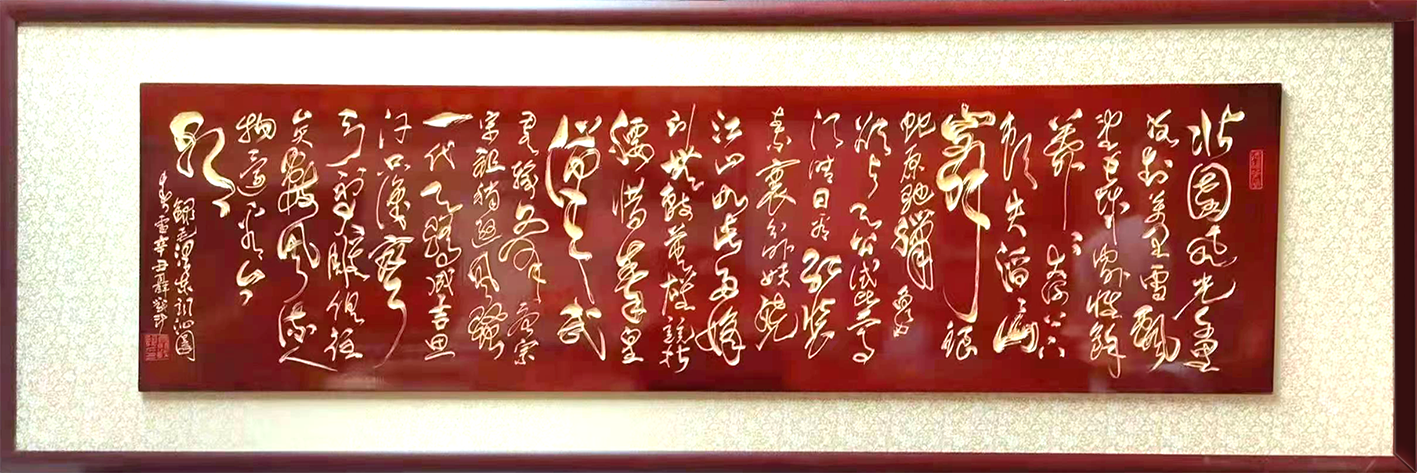 北國风光千里
冰封万里雪飘
望长城内外惟馀
莽莽大河上下
顿失滔滔山
舞银
蛇原驰蠟象
欲与天公试比高
须晴日看红装
素裹分外妖娆
江山如此多娇
引无数英雄竞折
腰惜秦皇
漢武
略输文采唐宗
宋祖稍逊风骚
一代天骄成吉思
汗只识弯
弓射大雕俱往
矣数风流人
物还看今
朝
録毛泽东词沁園
春雪辛丑